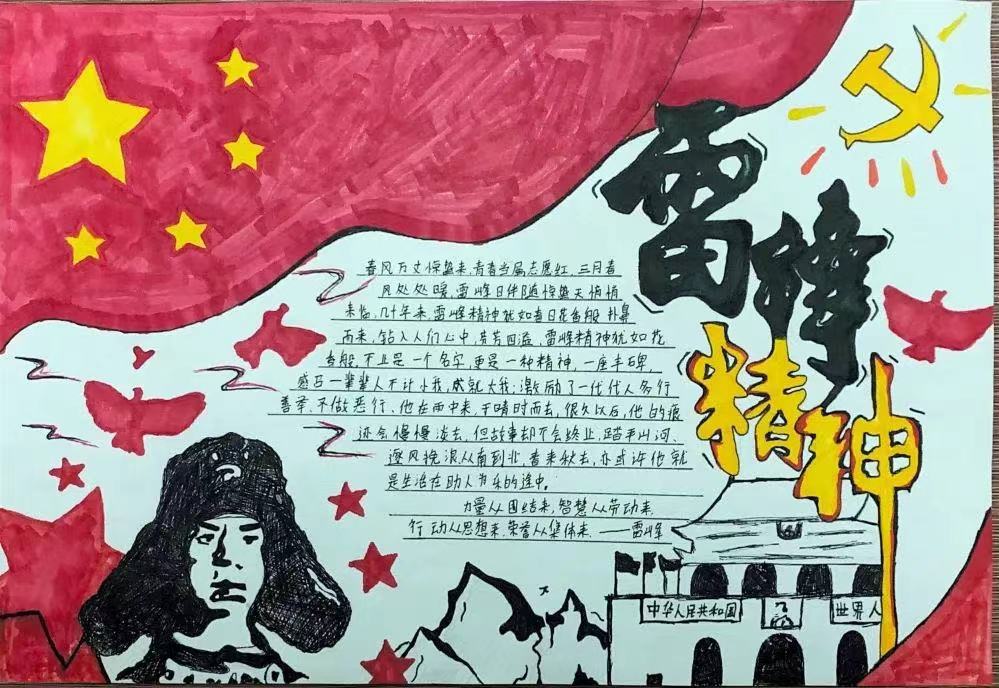 雷锋
精神
春风万丈惊蛰来,青春当属志愿红,三月春
风处处暖,雷锋日伴随惊蛰天悄悄
来临,几十年来,雷锋精神就如春日花香般扑鼻
而来,钻入人们心中,芳芳四溢,雷锋精神就如花
香般,不止是一个名字,更是一种精神,一座丰碑,
感召一辈辈人不计小我,成就大我;激励了一代代人多行
善举,不做恶行、他在雨中来,于晴时而去,很久以后,他的痕
迹会慢慢淡去,但故事却不会终止,踏平山河、
逐风挽浪从南到北,春来秋去,亦或许他就
是生活在助人为乐的途中。
力量从团结来,智慧从劳动来,
行动从思想来,荣誉从集体来.——雷峰
中华人民共和国
世界人